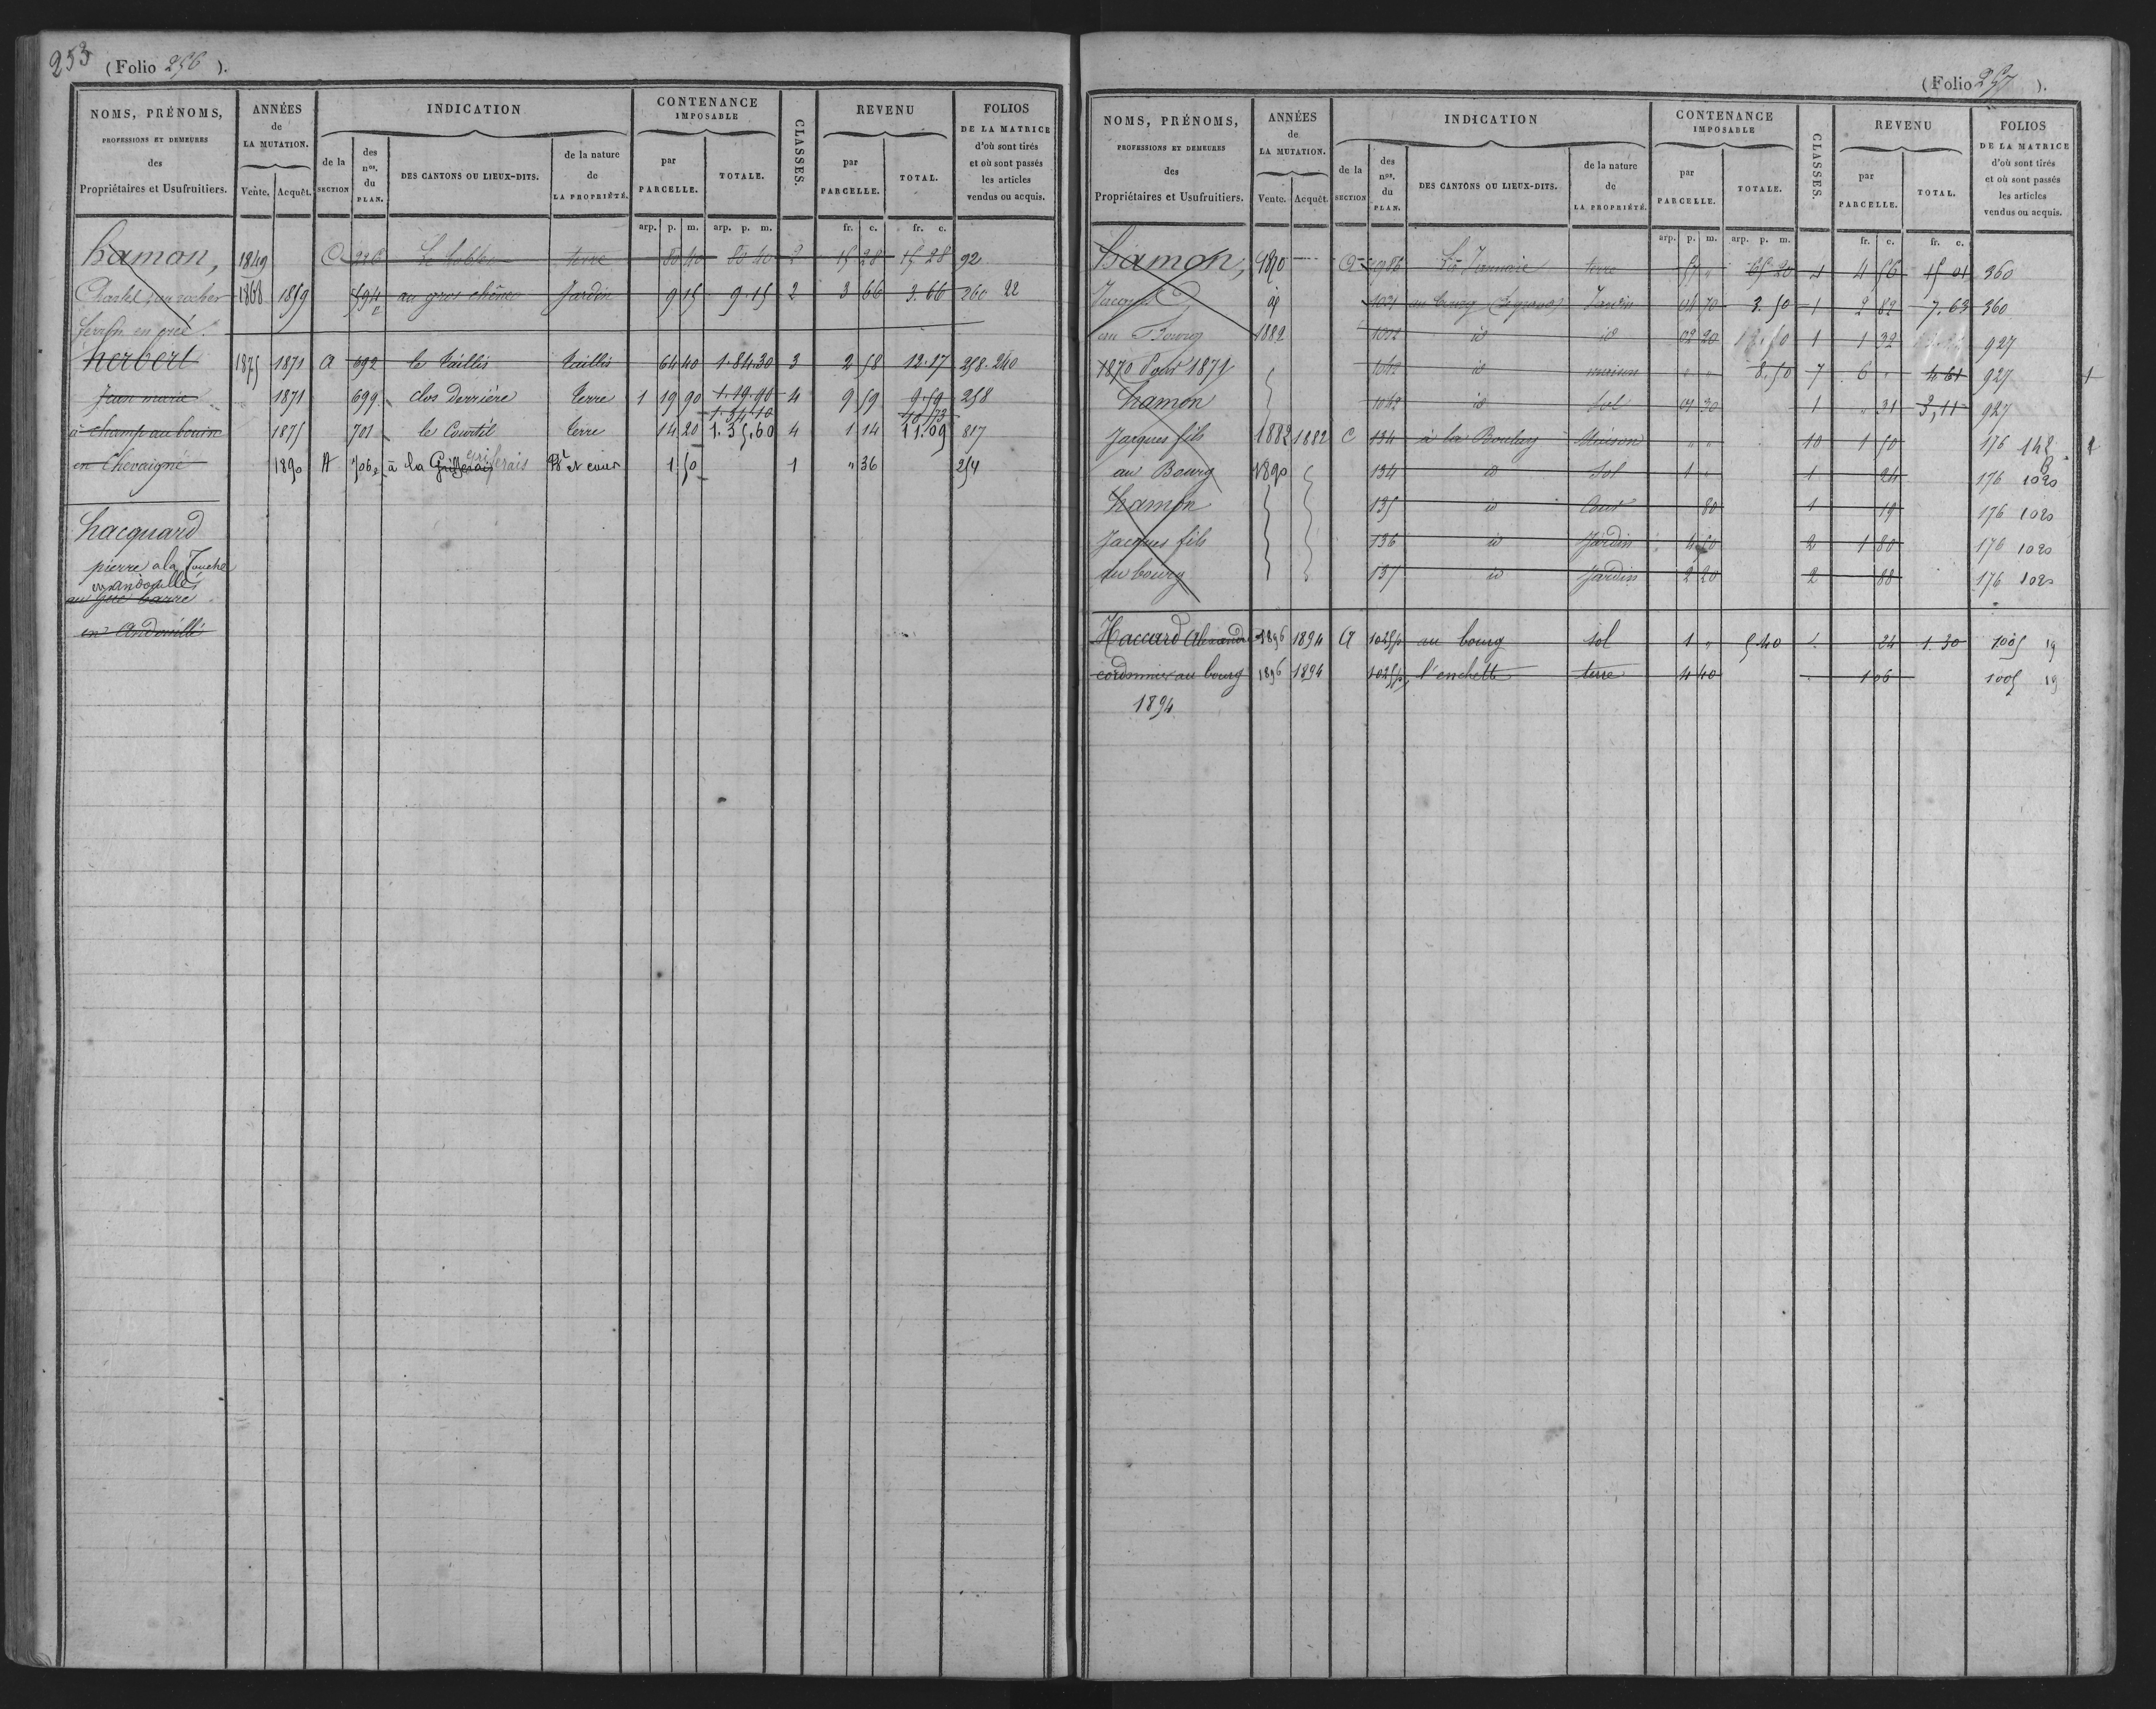 253 (Folio 256 ).
NOMS, PRÉNOMS, PROFESSIONS ET DEMEURES des Propriétaires et Usufruitiers.
ANNÉES de LA MUTATION. Vente. Acquêt.
INDICATION
de la SECTION
des nos. du PLAN.
DES CANTONS OU LIEUX-DITS.
de la nature de LA PROPRIÉTÉ.
CONTENANCE IMPOSABLE
par PARCELLE. TOTALE.
CLASSES.
REVENU
par PARCELLE. TOTAL.
FOLIOS DE LA MATRICE d'où sont tirés et où sont passés les articles vendus ou acquis.
arp. p. m. arp. p. m. fr. c. fr. c.
hamon, 1849 terre 80 40 80 40 2 15 28 15 28 92
1868 1859 594 au gros chêne Jardin 9 15 9.15 2 3 66 3.66 260 22
herbert 1875 1871 A 692 le taillis taillis 64 40 1.84.30 3 2 58 12.17 258.260
Jean marie 1871 699 clos Derrière terre 1 19 90 1.19.90 4 9 59 9.59 258
1.34.10
à champ au bouin 1875 701 le Courtil terre 14 20 1.35.60 4 1 14 11.09 817
en Chevaigné 1890 A 706 à la Grifferais Bt et cour 1 50 1 " 36 254
hacquard
pierre a la Touche
andouillé
au gué barré
en Andouillé
(Folio 257 ).
NOMS, PRÉNOMS, PROFESSIONS ET DEMEURES des Propriétaires et Usufruitiers.
ANNÉES de LA MUTATION. Vente. Acquêt.
INDICATION
de la SECTION
des nos. du PLAN.
DES CANTONS OU LIEUX-DITS.
de la nature de LA PROPRIÉTÉ.
CONTENANCE IMPOSABLE
par PARCELLE. TOTALE.
CLASSES.
REVENU
par PARCELLE. TOTAL.
FOLIOS DE LA MATRICE d'où sont tirés et où sont passés les articles vendus ou acquis.
arp. p. m. arp. p. m. fr. c. fr. c.
hamon, 1870 A 986 terre 57 " 65 20 4 4 56 15 01 360
Jacques 1021 au bourg Jardin 04 70 3.50 1 2 82 7.63 360
au Bourg 1882 id id 02 20 1 1 32 927
1870 Pour 1871 1042 id maison " " 8.50 7 6 " 4 61 927 1
hamon 1042 id Sol 01 30 1 " 31 3,11 927
Jacques fils 1882 1882 C 134 à la Boulay Maison " " 10 1 50 176 148
au Bourg 1890 134 id Sol 1 " 1 24 176 1020
hamon 135 id Cour 80 1 19 176 1020
Jacques fils 136 id Jardin 4 50 2 1 80 176 1020
au bourg 137 id Jardin 2 20 2 88 176 1020
Haccard Alexandre 1896 1894 A 1025p au bourg sol 1 " 5 40 1 24 1.30 1005 19
cordonnier au bourg 1896 1894 1025p l'enchette terre 4 40 1 06 1005 19
1894